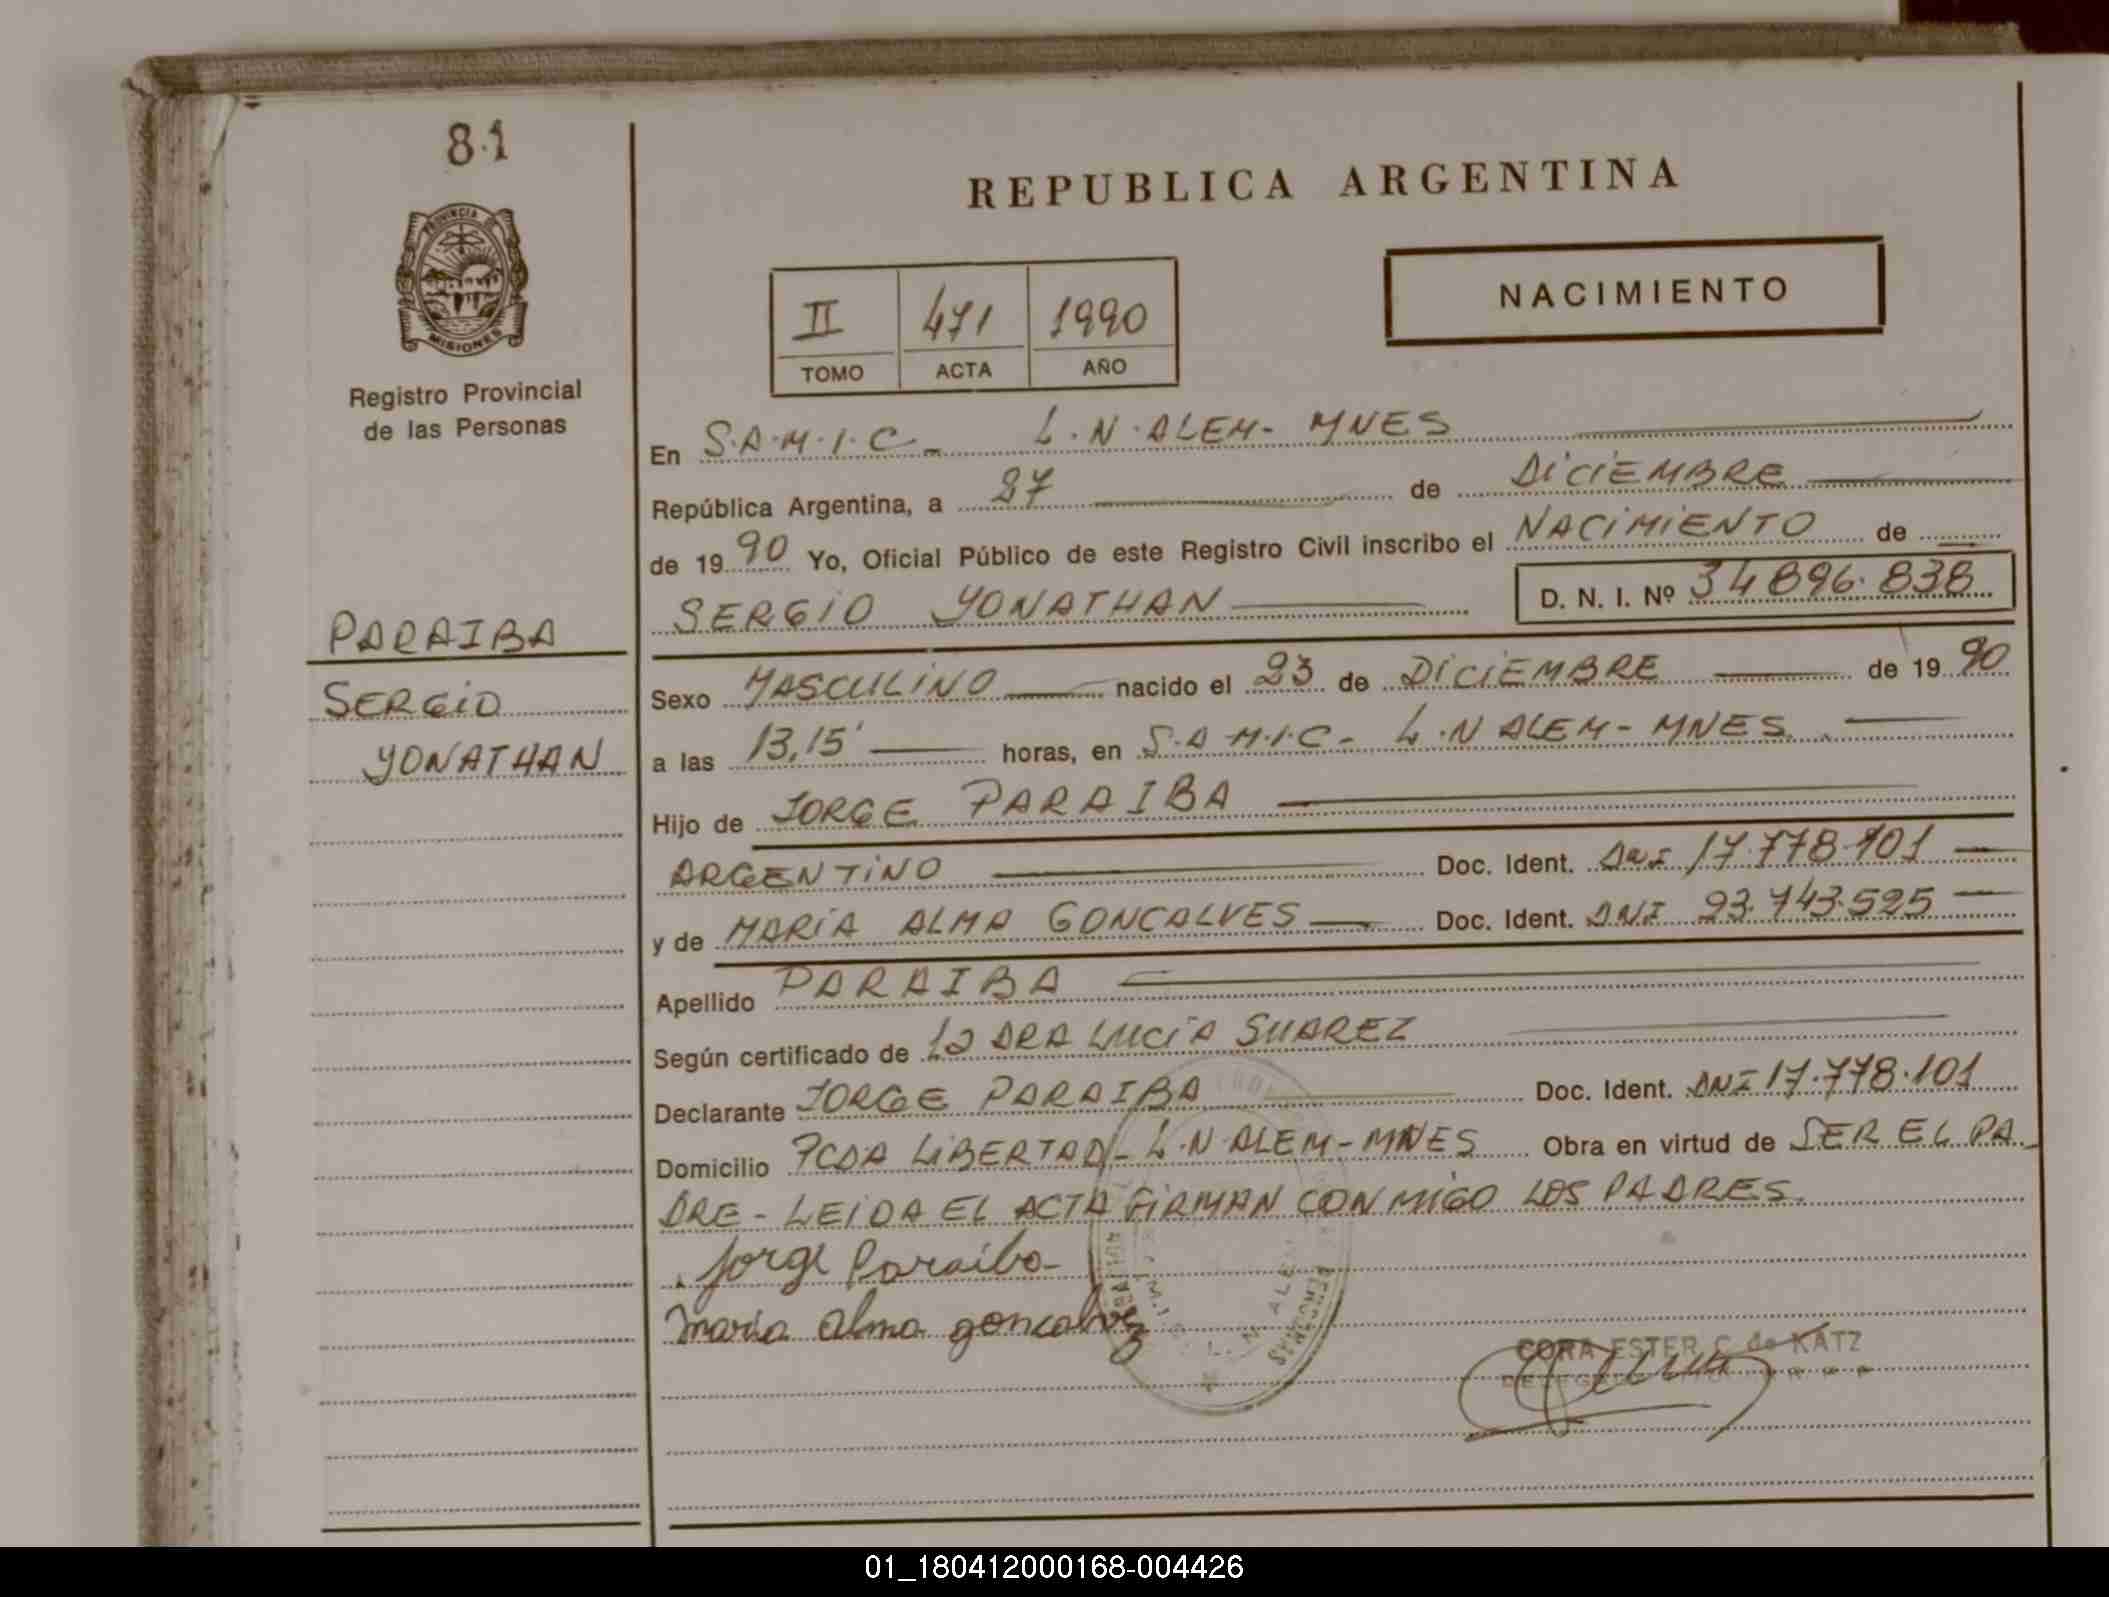 81
PROVINCIA DE
MISIONES
Registro Provincial
de las Personas
PARAIBA
SERGIO
YONATHAN
REPUBLICA ARGENTINA
NACIMIENTO
II 471 1990
TOMO ACTA AÑO
En S.A.M.I.C - L.N.ALEM - MNES
República Argentina, a 27 de DICIEMBRE
de 1990 Yo, Oficial Público de este Registro Civil inscribo el NACIMIENTO de
SERGIO YONATHAN D. N. I. Nº 34896.838
Sexo MASCULINO nacido el 23 de DICIEMBRE de 1990
a las 13,15' horas, en S.A.M.I.C - L.N ALEM - MNES
Hijo de JORGE PARAIBA
ARGENTINO Doc. Ident. DNI 17.778.101
y de MARIA ALMA GONCALVES Doc. Ident. DNI 93.743.525
Apellido PARAIBA
Según certificado de la DRA LUCIA SUAREZ
Declarante JORGE PARAIBA Doc. Ident. DNI 17.778.101
Domicilio PCDA LIBERTAD - L.N ALEM - MNES Obra en virtud de SER EL PA-
DRE - LEIDA EL ACTA FIRMAN CONMIGO LOS PADRES.
Jorge Paraiba
maria alma goncalvez
CORA ESTER C. de KATZ
01_180412000168-004426